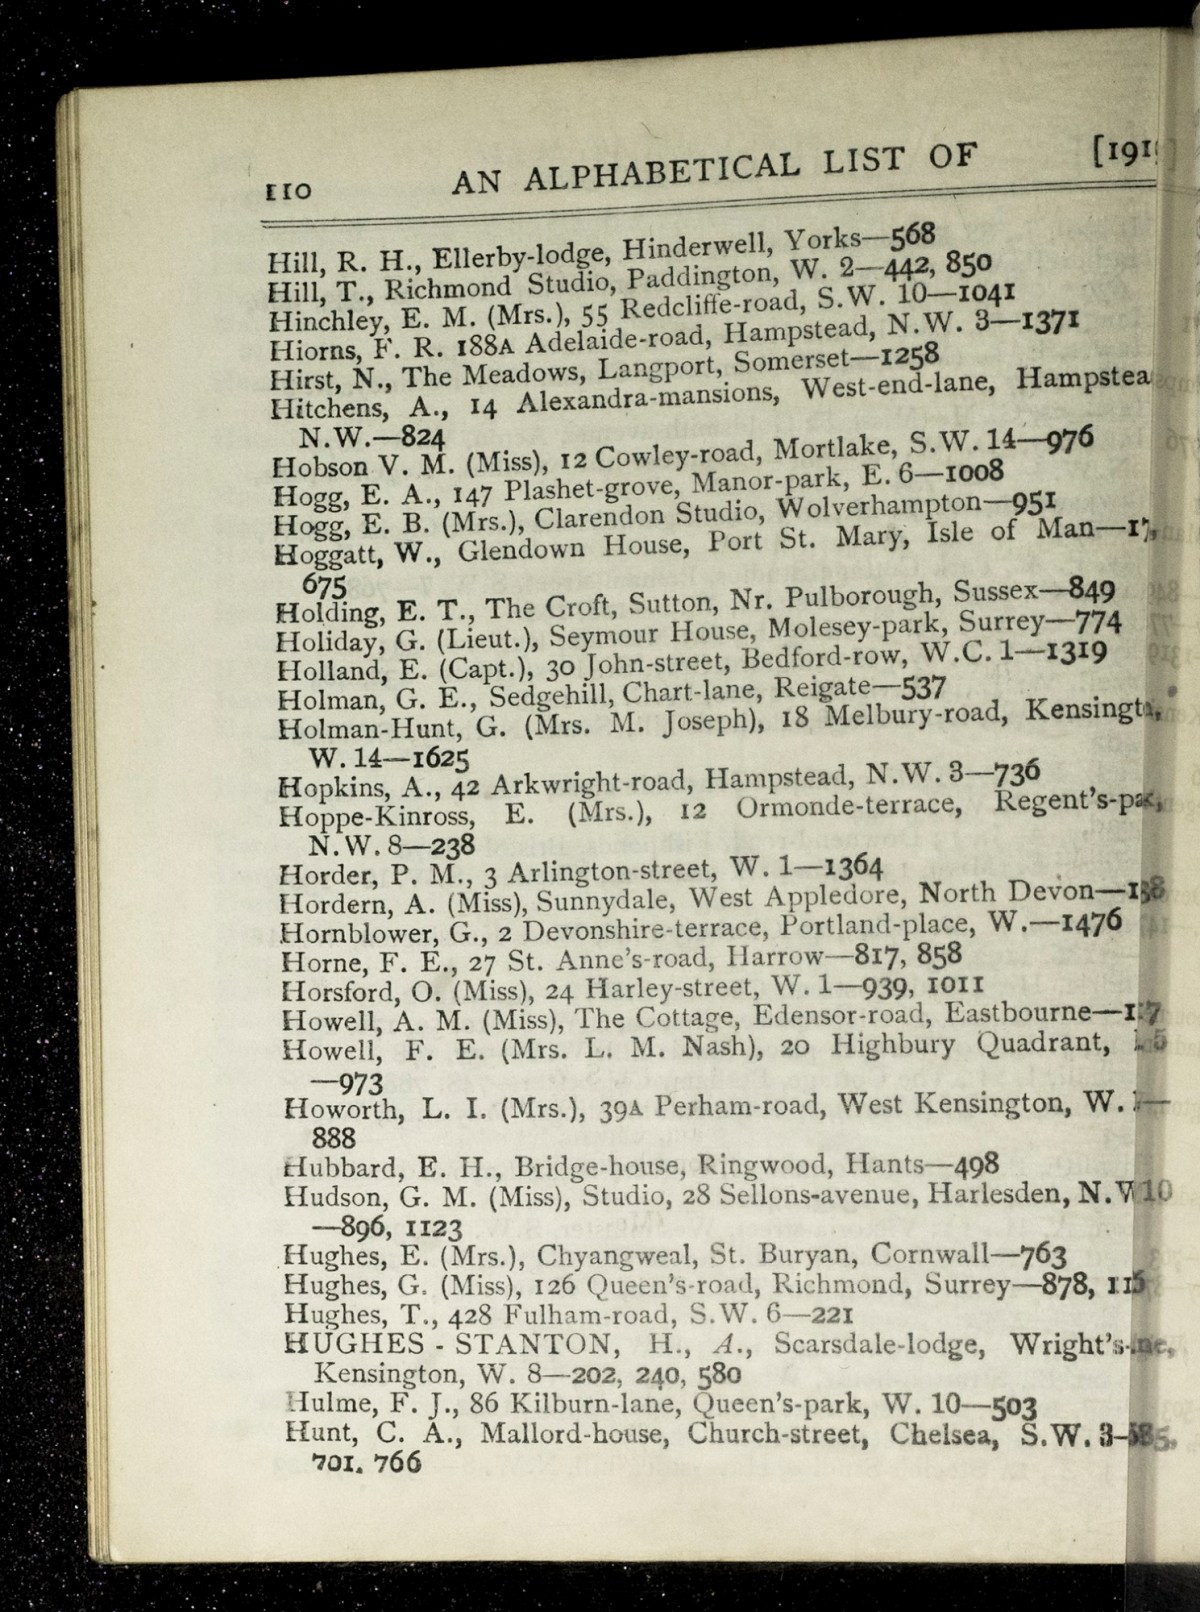 110 AN ALPHABETICAL LIST OF [191
Hill, R. H., Ellerby-lodge, Hinderwell, Yorks—568
Hill, T., Richmond Studio, Paddington, W. 2—442, 850
Hinchley, E. M. (Mrs.), 55 Redcliffe-road, S.W. 10—1041
Hiorns, F. R. 188A Adelaide-road, Hampstead, N.W. 3—1371
Hirst, N., The Meadows, Langport, Somerset—1258
Hitchens, A., 14 Alexandra-mansions, West-end-lane, Hampstea
N.W.—824
Hobson V. M. (Miss), 12 Cowley-road, Mortlake, S.W. 14—976
Hogg, E. A., 147 Plashet-grove, Manor-park, E. 6—1008
Hogg, E. B. (Mrs.), Clarendon Studio, Wolverhampton—951
Hoggatt, W., Glendown House, Port St. Mary, Isle of Man—
675
Holding, E. T., The Croft, Sutton, Nr. Pulborough, Sussex—849
Holiday, G. (Lieut.), Seymour House, Molesey-park, Surrey—774
Holland, E. (Capt.), 30 John-street, Bedford-row, W.C. 1—1319
Holman, G. E., Sedgehill, Chart-lane, Reigate—537
Holman-Hunt, G. (Mrs. M. Joseph), 18 Melbury-road, Kensingt
W. 14—1625
Hopkins, A., 42 Arkwright-road, Hampstead, N.W. 3—736
Hoppe-Kinross, E. (Mrs.), 12 Ormonde-terrace, Regent's-pa
N.W. 8—238
Horder, P. M., 3 Arlington-street, W. 1—1364
Hordern, A. (Miss), Sunnydale, West Appledore, North Devon—
Hornblower, G., 2 Devonshire-terrace, Portland-place, W.—1476
Horne, F. E., 27 St. Anne's-road, Harrow—817, 858
Horsford, O. (Miss), 24 Harley-street, W. 1—939, 1011
Howell, A. M. (Miss), The Cottage, Edensor-road, Eastbourne—
Howell, F. E. (Mrs. L. M. Nash), 20 Highbury Quadrant,
—973
Howorth, L. I. (Mrs.), 39A Perham-road, West Kensington, W.
888
Hubbard, E. H., Bridge-house, Ringwood, Hants—498
Hudson, G. M. (Miss), Studio, 28 Sellons-avenue, Harlesden, N.W 10
—896, 1123
Hughes, E. (Mrs.), Chyangweal, St. Buryan, Cornwall—763
Hughes, G. (Miss), 126 Queen's-road, Richmond, Surrey—878,
Hughes, T., 428 Fulham-road, S.W. 6—221
HUGHES - STANTON, H., A., Scarsdale-lodge, Wright's-
Kensington, W. 8—202, 240, 580
Hulme, F. J., 86 Kilburn-lane, Queen's-park, W. 10—503
Hunt, C. A., Mallord-house, Church-street, Chelsea, S.W. 3—
701, 766